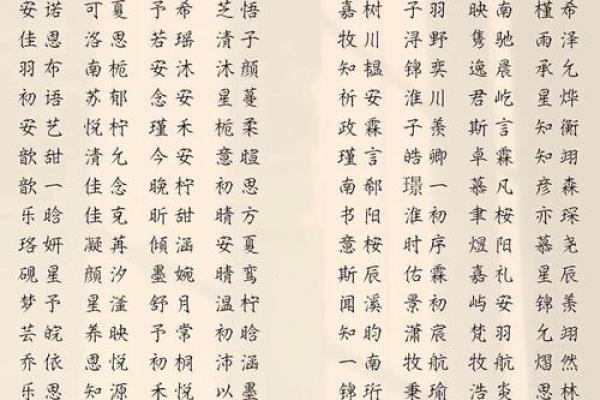 安诺 可夏 予希 芝悟 嘉树 子羽 映南 槿希
佳恩 洛思 若瑶 清子 牧川 浔野 隽驰 雨泽
羽布 南栀 安沐 沐颜 知韫 锦奕 逸晨 承允
初语 苏郁 念安 星蔓 祈安 淮川 君屹 星烨
安艺 悦柠 瑾禾 栀柔 政霖 子羡 斯言 知衡
歆甜 清允 今安 意暄 瑾言 皓卿 卓霖 知翊
歆一 佳念 晚柠 初思 南郗 璟一 慕凡 彦森
乐晗 佳克 昕甜 晴方 书阳 淮初 聿桉 亦琛
珞妍 凝苒 倾涵 安夏 意桉 时序 煜阳 慕尧
砚星 颜汐 墨婉 晴鸾 斯辰 佑霖 嘉礼 星辰
梦予 星滢 舒月 温柠 闻溪 景初 屿安 锦羡
芸皖 养映 予常 初晗 知昀 潇宸 梵羽 允翊
乔依 恩悦 初桐 沛涵 一南 子航 牧航 熠然
乐思 知源 禾悦 以墨 锦珩 秉瑜 浩炎 思林